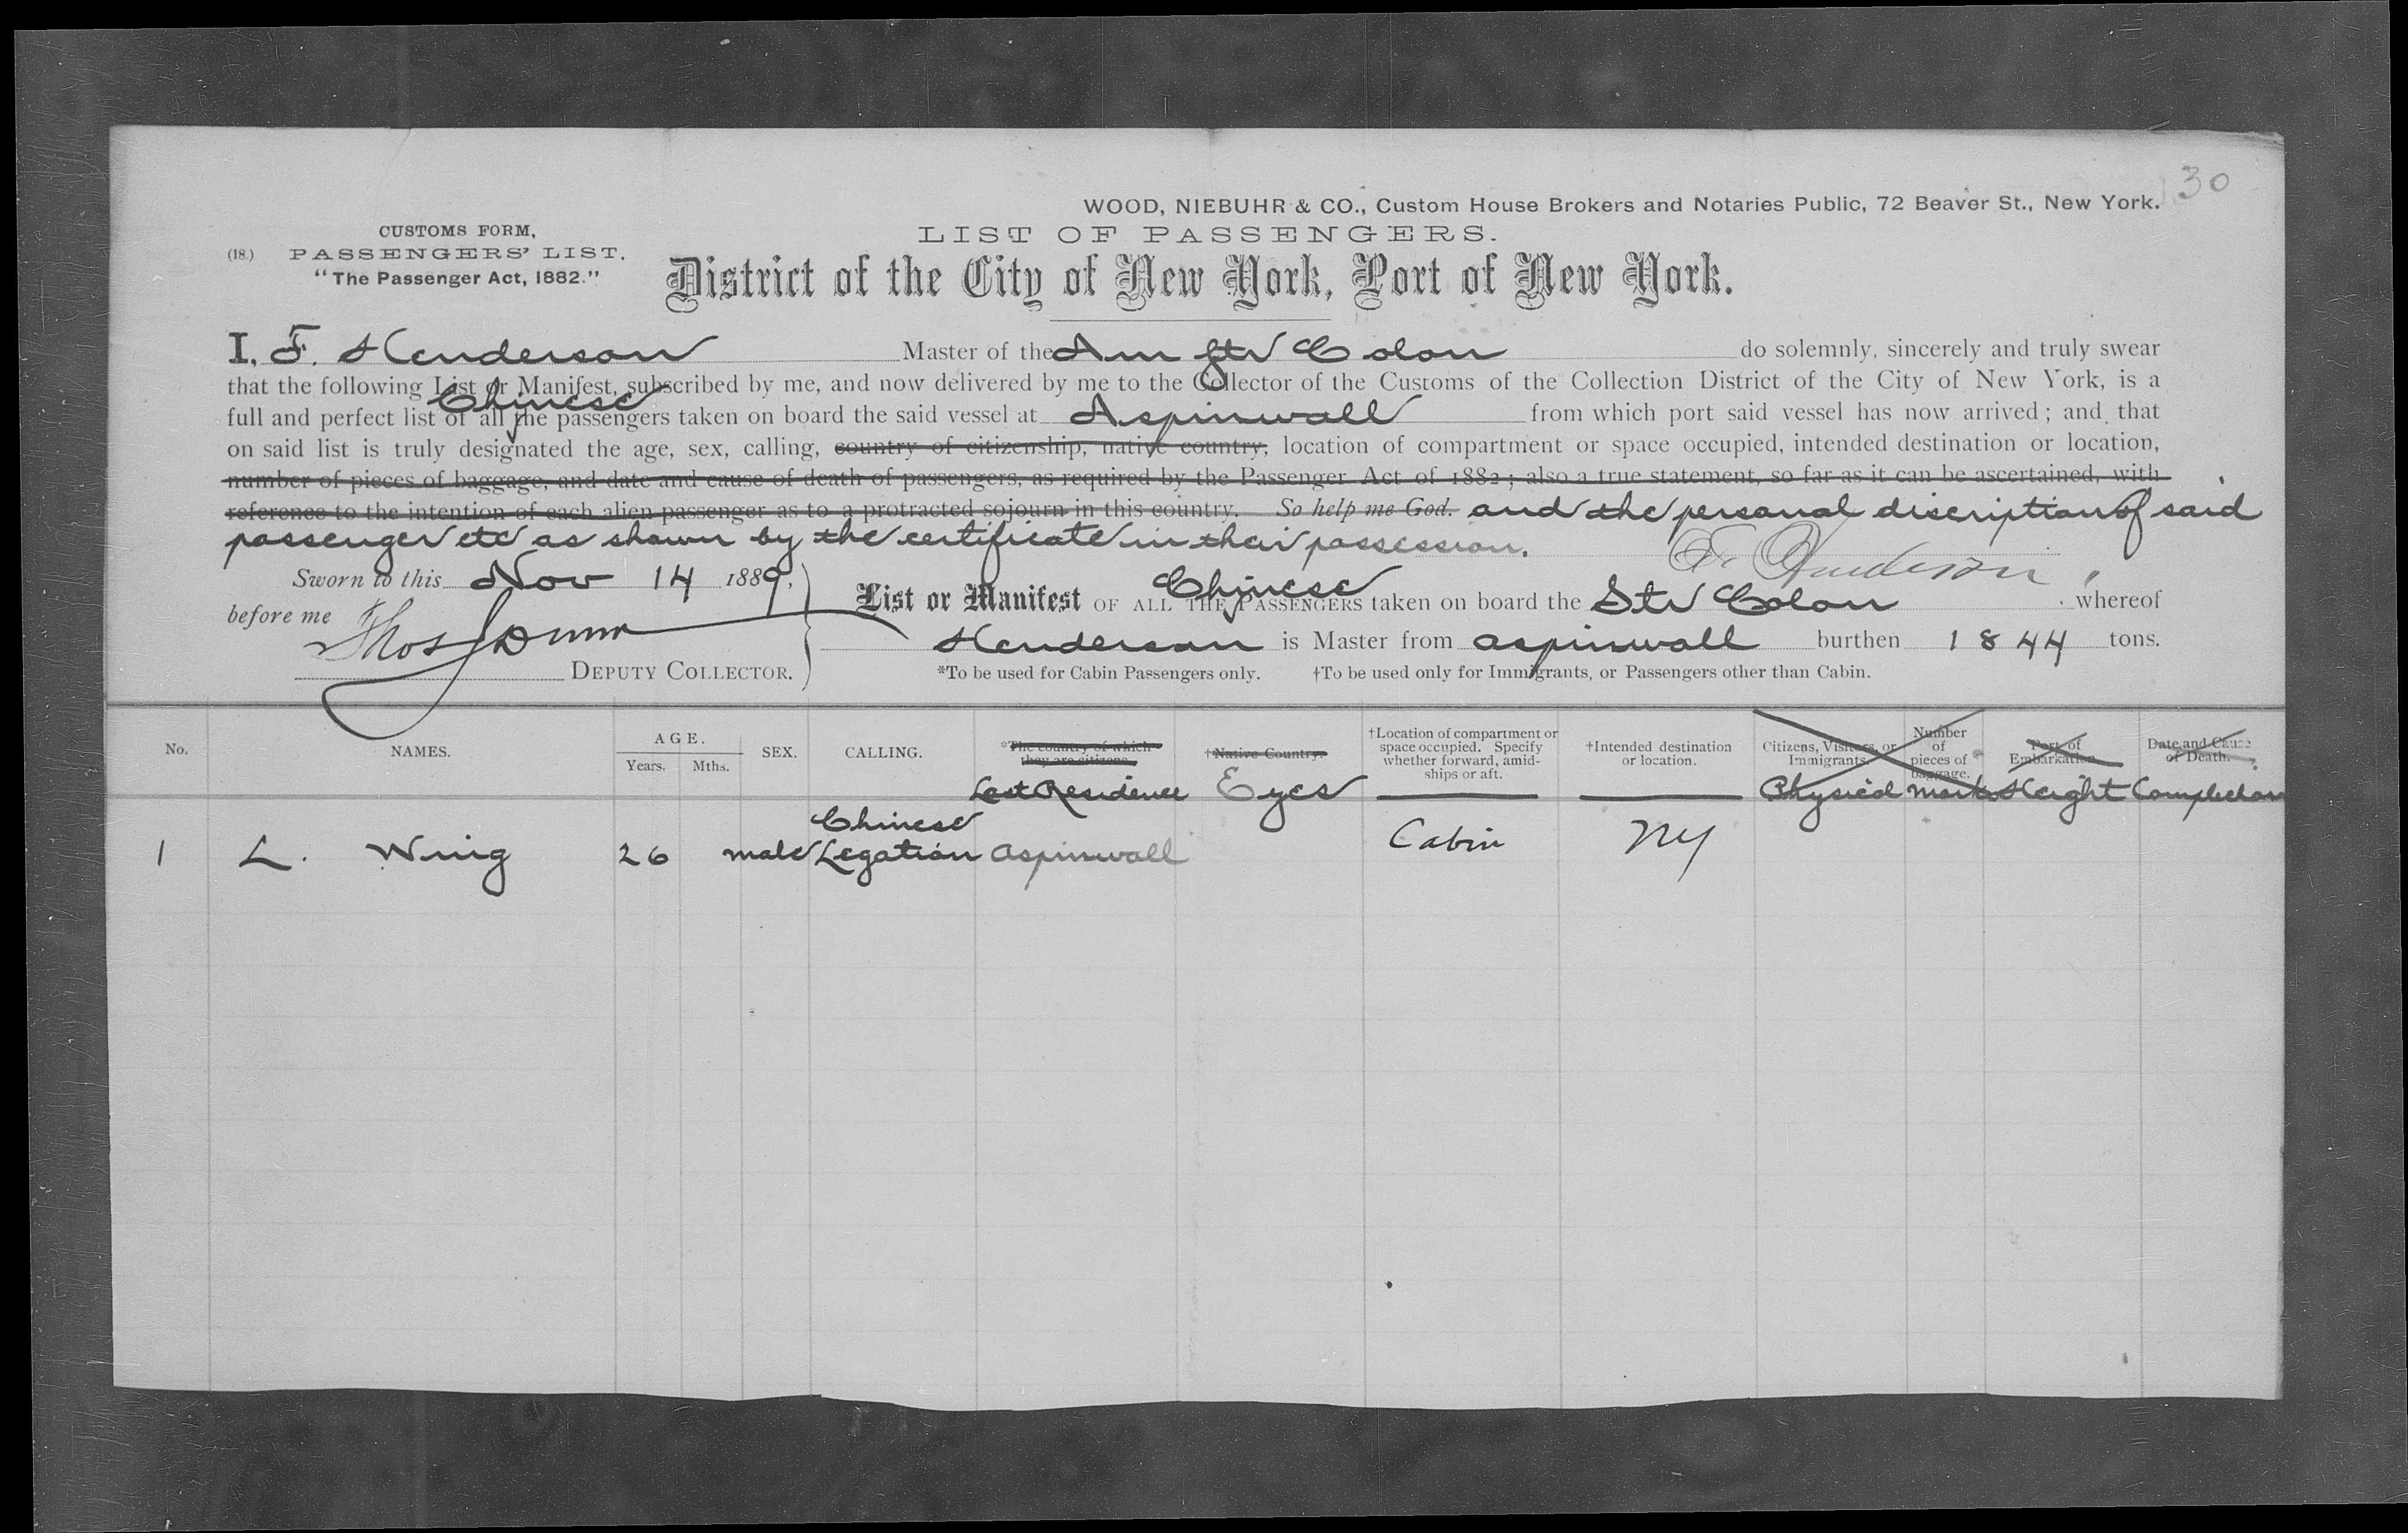 30
WOOD, NIEBUHR & CO., Custom House Brokers and Notaries Public, 72 Beaver St., New York.
CUSTOMS FORM,
(18.) PASSENGERS' LIST.
"The Passenger Act, 1882."
LIST OF PASSENGERS.
District of the City of New York, Port of New York.
I, F. Henderson Master of the Am Str Colon do solemnly, sincerely and truly swear
that the following List or Manifest, subscribed by me, and now delivered by me to the Collector of the Customs of the Collection District of the City of New York, is a
Chinese
full and perfect list of all the passengers taken on board the said vessel at Aspinwall from which port said vessel has now arrived; and that
on said list is truly designated the age, sex, calling, country of citizenship, native country, location of compartment or space occupied, intended destination or location,
number of pieces of baggage, and date and cause of death of passengers, as required by the Passenger Act of 1882; also a true statement, so far as it can be ascertained, with
reference to the intention of each alien passenger as to a protracted sojourn in this country. So help me God. and the personal discription of said
passenger etc as shown by the certificate in their possession.
F. Henderson
Sworn to this Nov 14 1889,
before me Thos J Dunn
DEPUTY COLLECTOR.
Chinese
List or Manifest OF ALL THE PASSENGERS taken on board the Str Colon whereof
Henderson is Master from Aspinwall burthen 1844 tons.
*To be used for Cabin Passengers only. †To be used only for Immigrants, or Passengers other than Cabin.
No. NAMES. AGE. Years. Mths. SEX. CALLING. *The country of which they are citizens. †Native Country. †Location of compartment or space occupied. Specify whether forward, amidships or aft. †Intended destination or location. Citizens, Visitors, or Immigrants. Number of pieces of baggage. Port of Embarkation. Date and Cause of Death.
Last Residence Eyes Physical Marks Height Complection
Chinese
1 L. Wing 26 male Legation Aspinwall Cabin NY